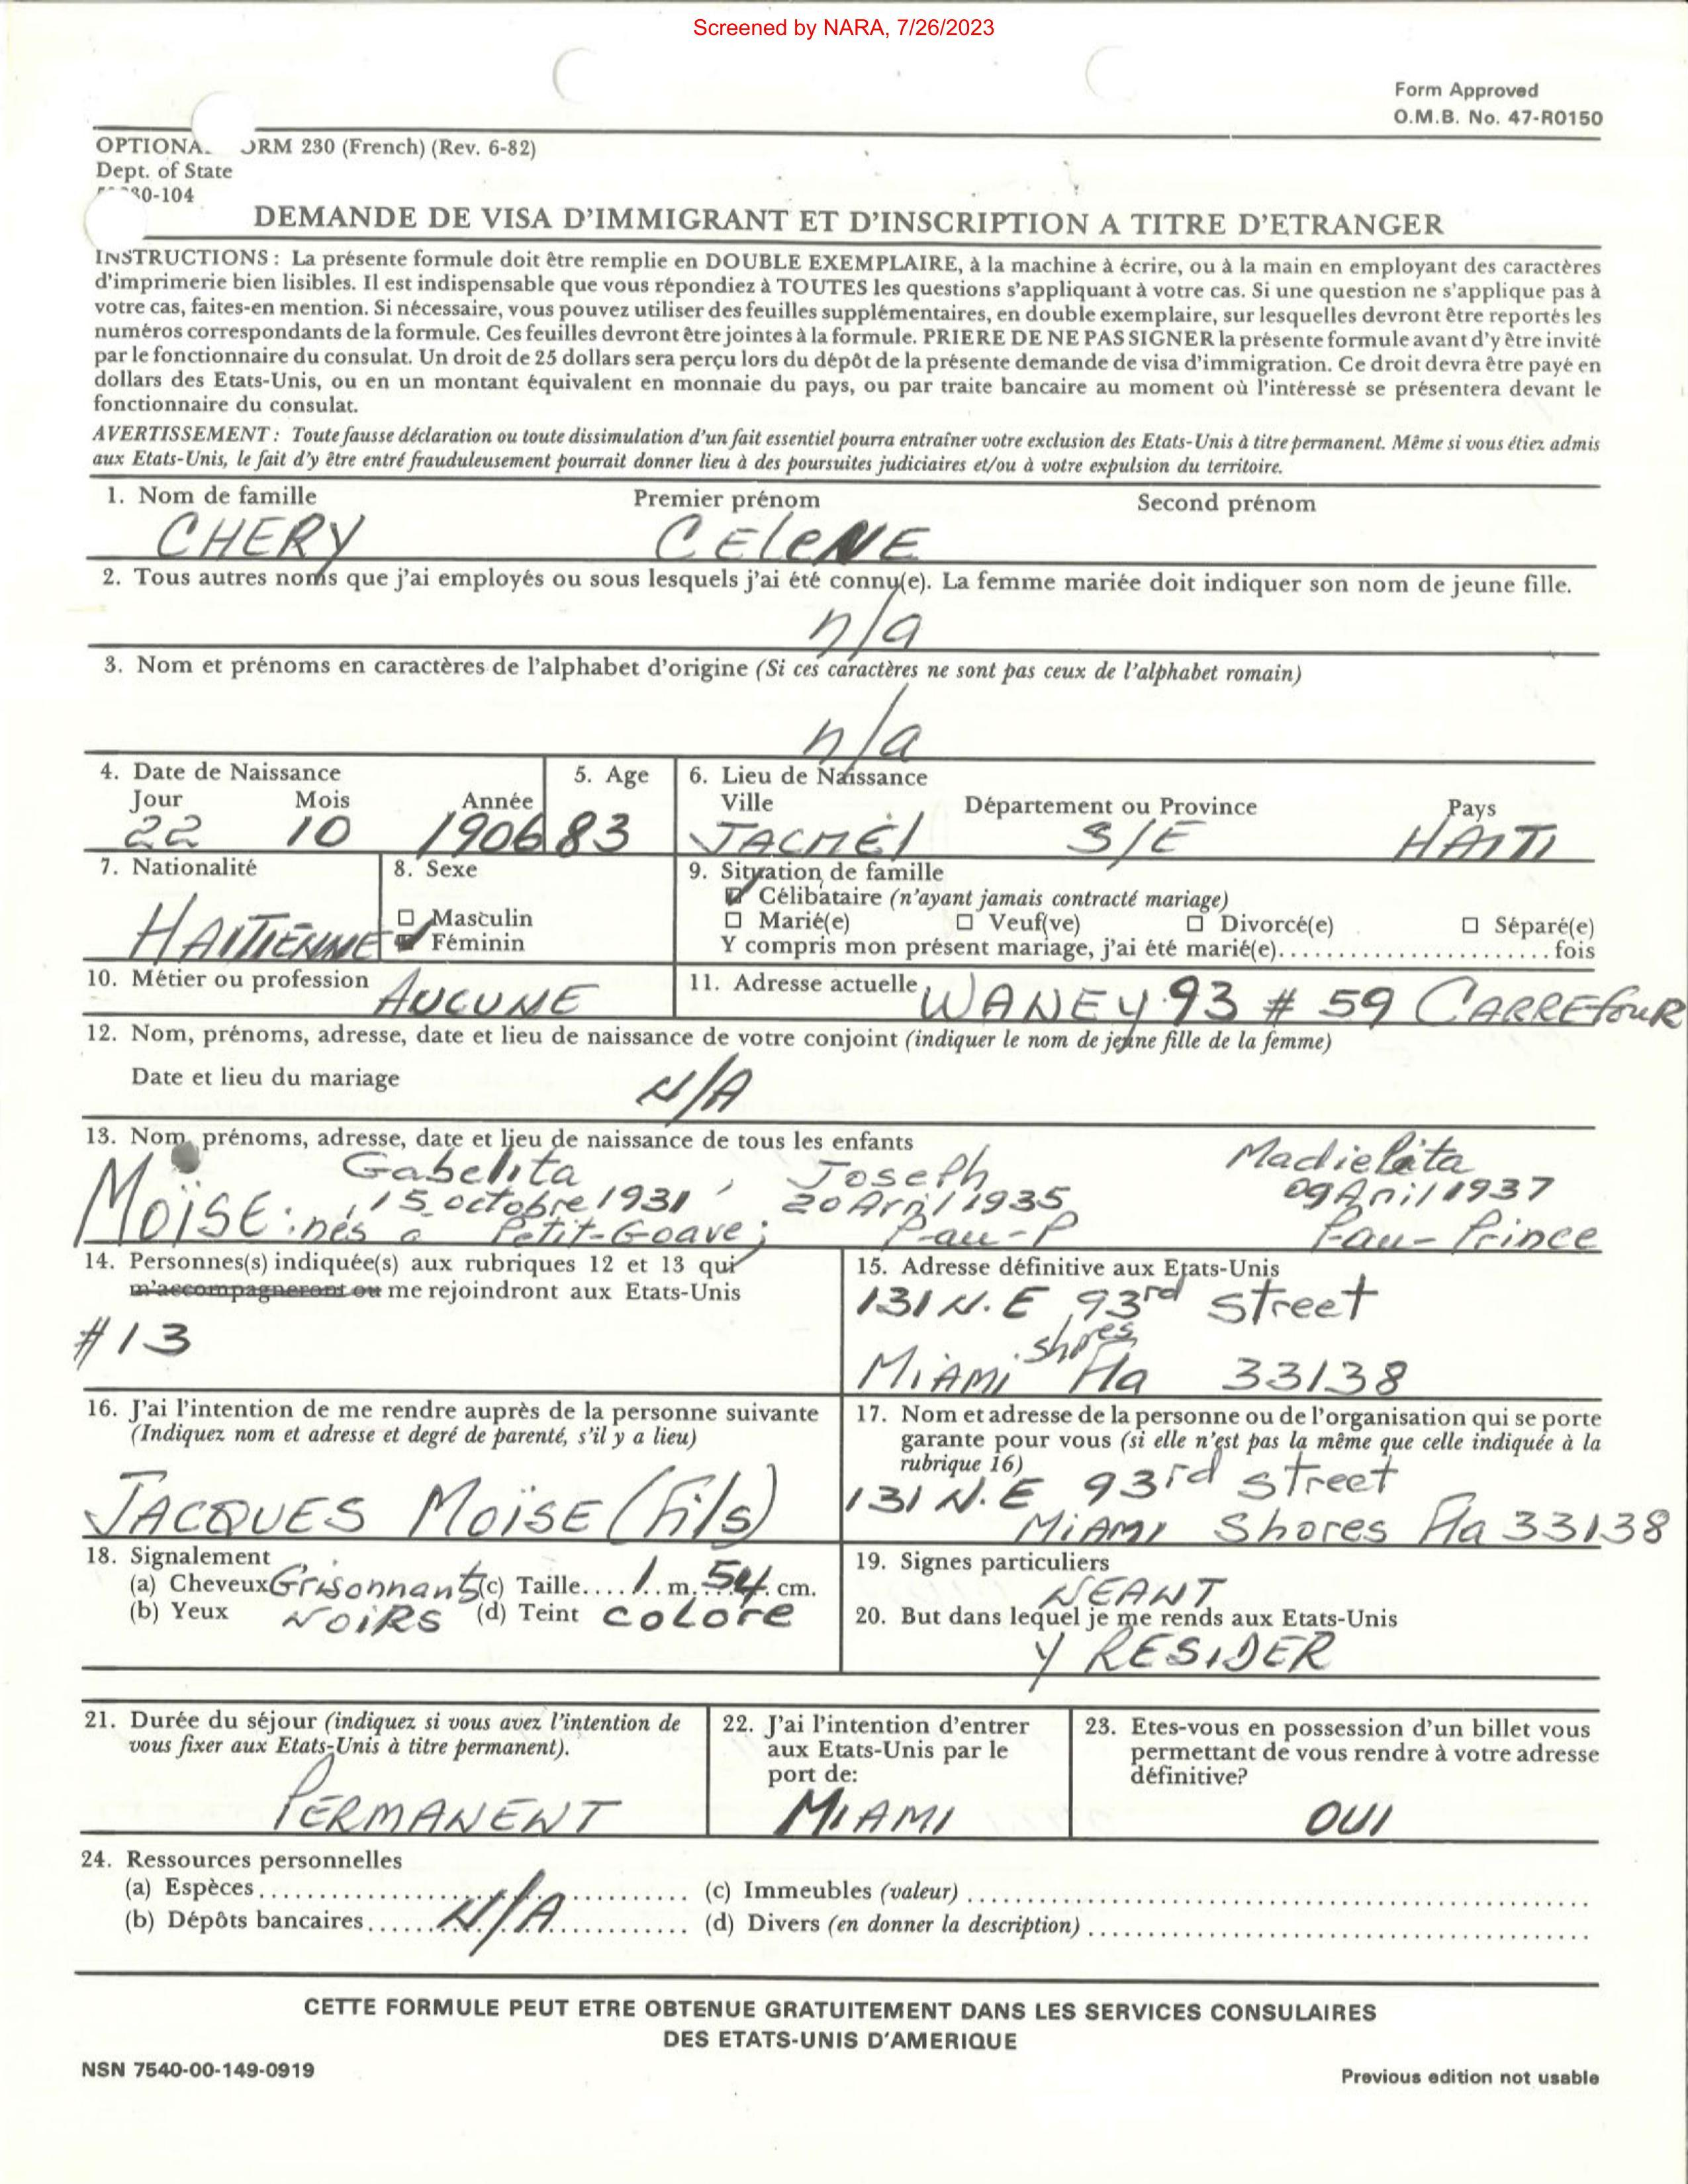 Screened by NARA, 7/26/2023
Form Approved
O.M.B. No. 47-R0150
OPTIONA ORM 230 (French) (Rev. 6-82)
Dept. of State
30-104
DEMANDE DE VISA D'IMMIGRANT ET D'INSCRIPTION A TITRE D'ETRANGER
INSTRUCTIONS : La présente formule doit être remplie en DOUBLE EXEMPLAIRE, à la machine à écrire, ou à la main en employant des caractères
d'imprimerie bien lisibles. Il est indispensable que vous répondiez à TOUTES les questions s'appliquant à votre cas. Si une question ne s'applique pas à
votre cas, faites-en mention. Si nécessaire, vous pouvez utiliser des feuilles supplémentaires, en double exemplaire, sur lesquelles devront être reportés les
numéros correspondants de la formule. Ces feuilles devront être jointes à la formule. PRIERE DE NE PAS SIGNER la présente formule avant d'y être invité
par le fonctionnaire du consulat. Un droit de 25 dollars sera perçu lors du dépôt de la présente demande de visa d'immigration. Ce droit devra être payé en
dollars des Etats-Unis, ou en un montant équivalent en monnaie du pays, ou par traite bancaire au moment où l'intéressé se présentera devant le
fonctionnaire du consulat.
AVERTISSEMENT : Toute fausse déclaration ou toute dissimulation d'un fait essentiel pourra entraîner votre exclusion des Etats-Unis à titre permanent. Même si vous étiez admis
aux Etats-Unis, le fait d'y être entré frauduleusement pourrait donner lieu à des poursuites judiciaires et/ou à votre expulsion du territoire.
1. Nom de famille Premier prénom Second prénom
CHERY CEleNE
2. Tous autres noms que j'ai employés ou sous lesquels j'ai été connu(e). La femme mariée doit indiquer son nom de jeune fille.
n/a
3. Nom et prénoms en caractères de l'alphabet d'origine (Si ces caractères ne sont pas ceux de l'alphabet romain)
n/a
4. Date de Naissance 5. Age 6. Lieu de Naissance
Jour Mois Année Ville Département ou Province Pays
22 10 1906 83 JACMEl S/E HAITI
7. Nationalité 8. Sexe 9. Situation de famille
Célibataire (n'ayant jamais contracté mariage)
Masculin Marié(e) Veuf(ve) Divorcé(e) Séparé(e)
HAITIENNE Féminin Y compris mon présent mariage, j'ai été marié(e)........................fois
10. Métier ou profession AUCUNE 11. Adresse actuelle WANEY 93 # 59 CARREfouR
12. Nom, prénoms, adresse, date et lieu de naissance de votre conjoint (indiquer le nom de jeune fille de la femme)
Date et lieu du mariage N/A
13. Nom, prénoms, adresse, date et lieu de naissance de tous les enfants
Gabelita , Joseph Madielita
MOÏSE: , 15 octobre 1931 20 Avril 1935 09 Avril 1937
nés à Petit-Goave; P-au-P P-au-Prince
14. Personnes(s) indiquée(s) aux rubriques 12 et 13 qui 15. Adresse définitive aux Etats-Unis
m'accompagneront ou me rejoindront aux Etats-Unis 131 N.E 93rd Street
#13 MiAMi shores Fla 33138
16. J'ai l'intention de me rendre auprès de la personne suivante
(Indiquez nom et adresse et degré de parenté, s'il y a lieu)
JACQUES MOÏSE (Fils)
17. Nom et adresse de la personne ou de l'organisation qui se porte
garante pour vous (si elle n'est pas la même que celle indiquée à la
rubrique 16)
131 N.E 93rd Street
MiAMi Shores Fla 33138
18. Signalement
(a) Cheveux Grisonnants (c) Taille.... 1 ..m. 54 .cm.
(b) Yeux NOiRS (d) Teint COLOre
19. Signes particuliers
NEANT
20. But dans lequel je me rends aux Etats-Unis
Y RESIDER
21. Durée du séjour (indiquez si vous avez l'intention de
vous fixer aux Etats-Unis à titre permanent).
PERMANENT
22. J'ai l'intention d'entrer
aux Etats-Unis par le
port de:
MiAMI
23. Etes-vous en possession d'un billet vous
permettant de vous rendre à votre adresse
définitive?
OUI
24. Ressources personnelles
(a) Espèces.................................... (c) Immeubles (valeur) ....................................
(b) Dépôts bancaires...... N/A ............ (d) Divers (en donner la description) ....................................
CETTE FORMULE PEUT ETRE OBTENUE GRATUITEMENT DANS LES SERVICES CONSULAIRES
DES ETATS-UNIS D'AMERIQUE
NSN 7540-00-149-0919 Previous edition not usable